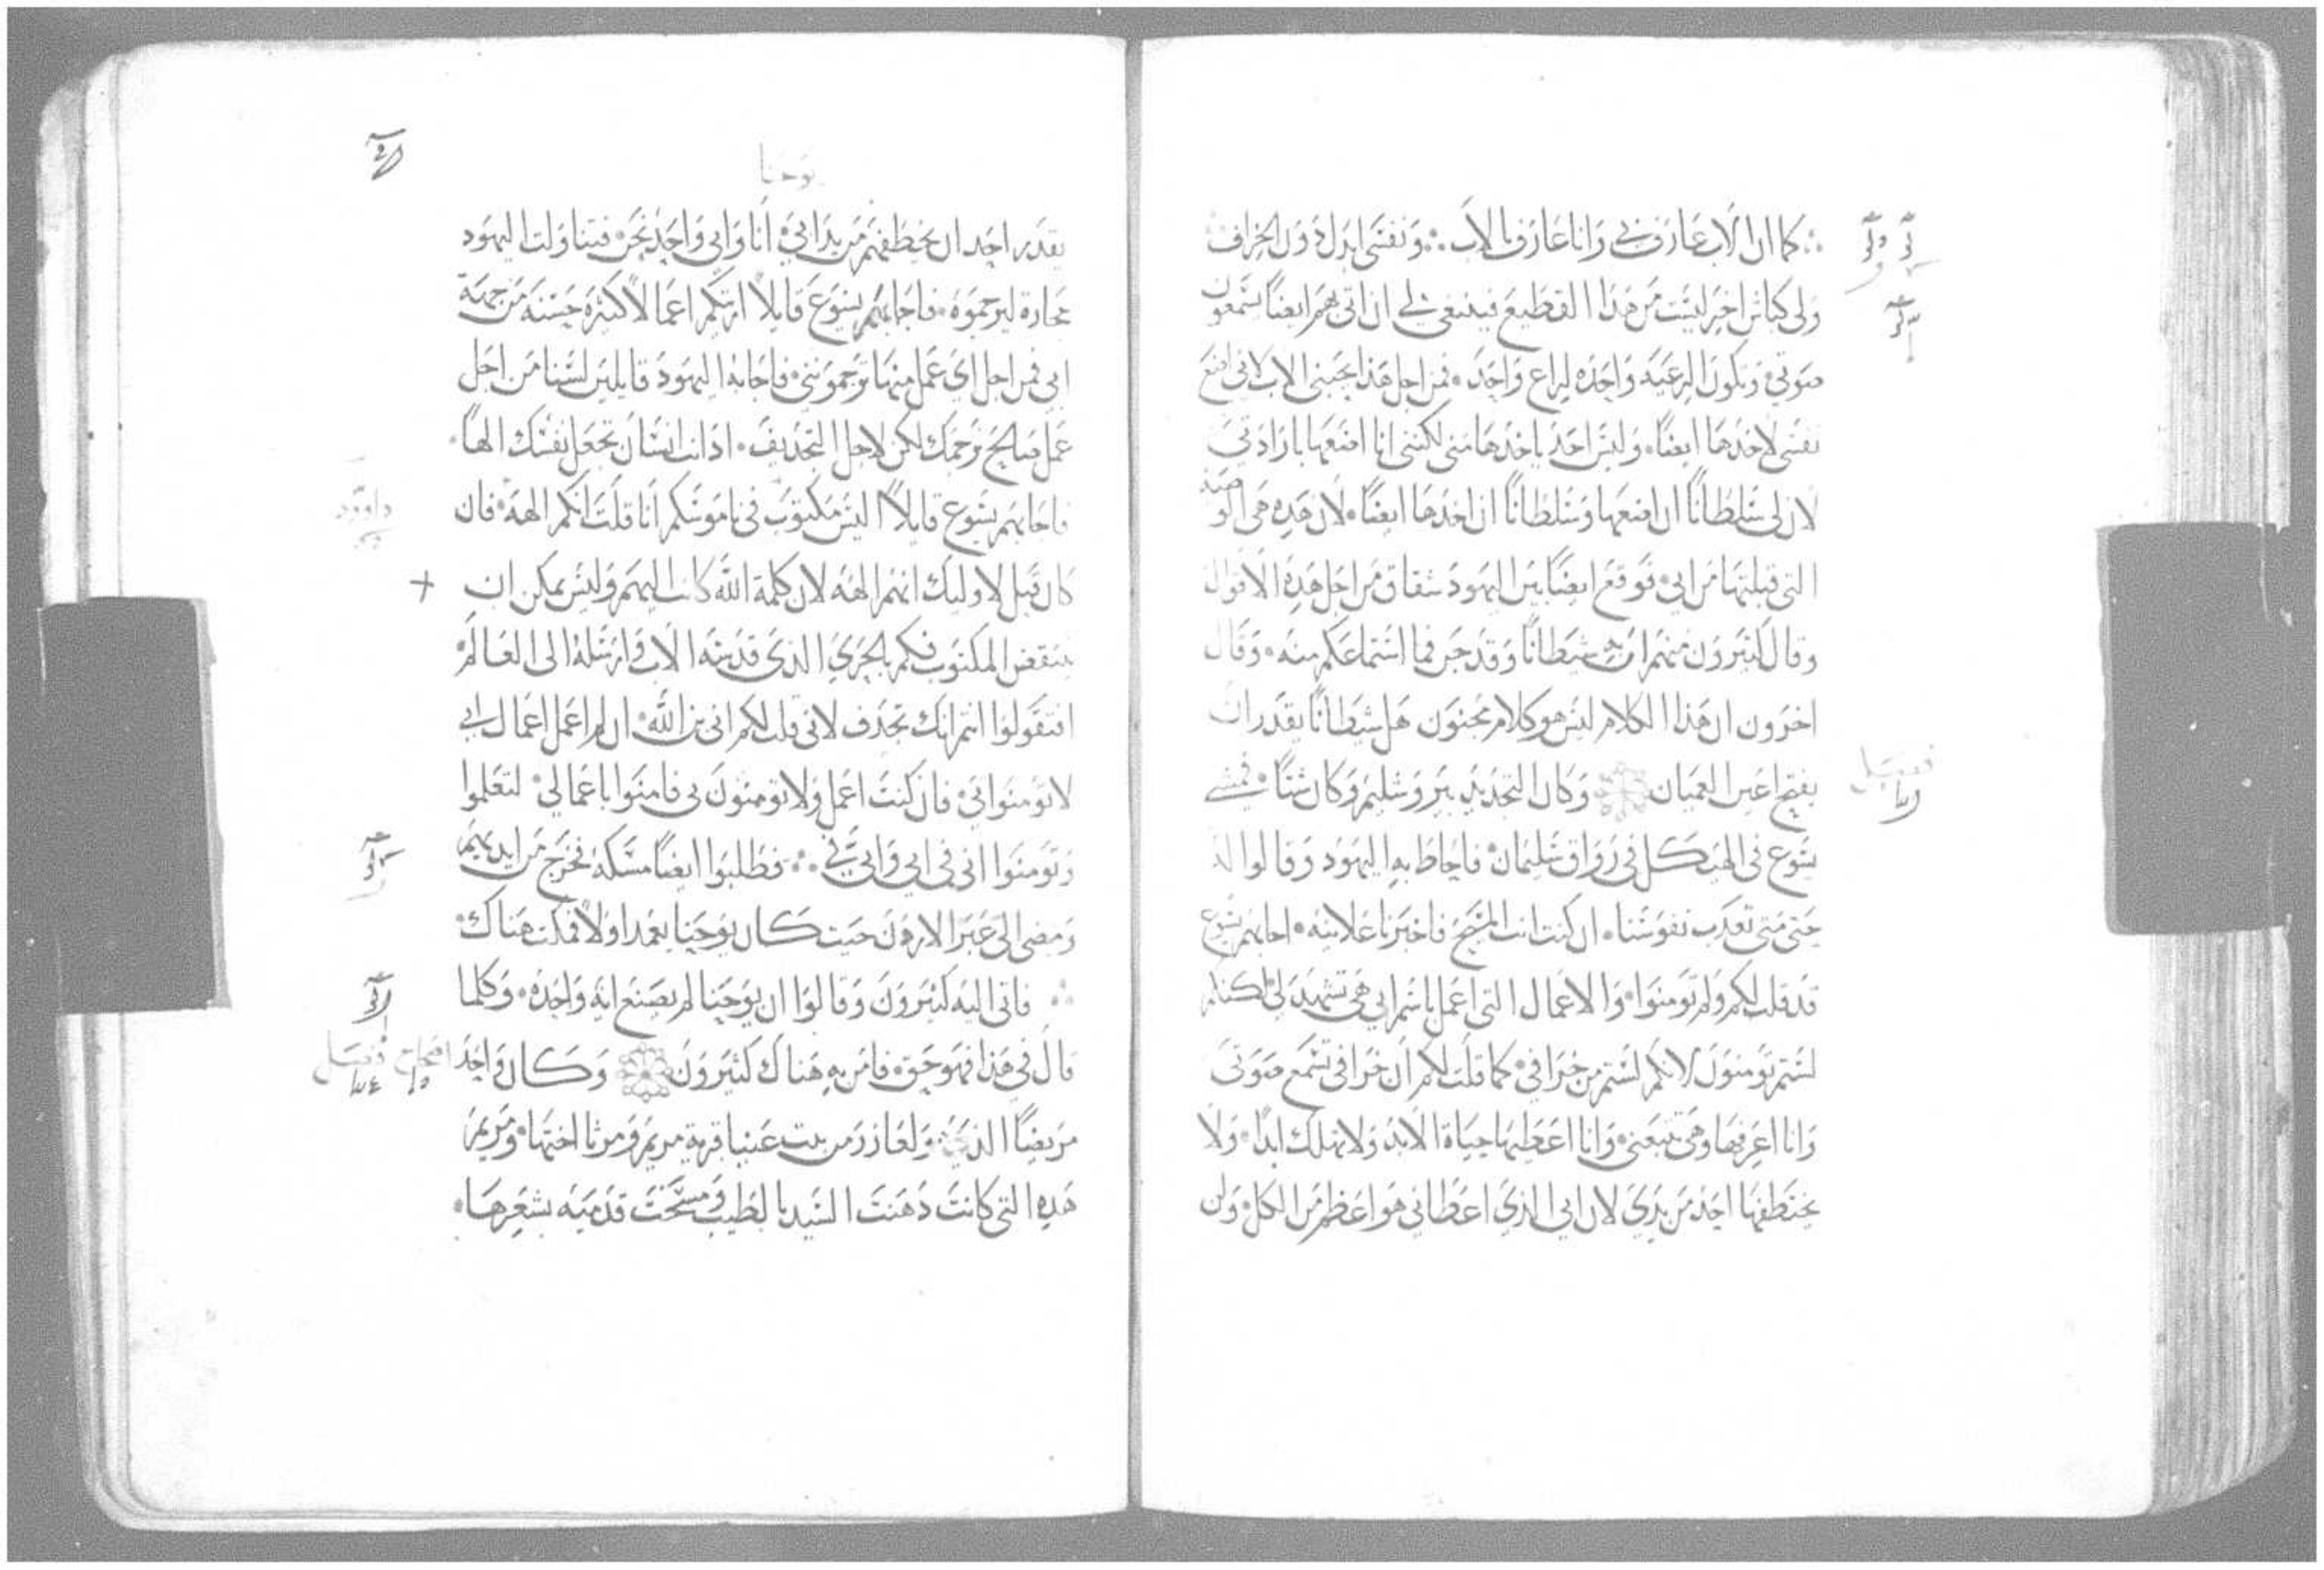 كما ان الاب عارف بي وانا عارف بالاب ونفسي ابدل دون الخراف
ولي كباش اخر ليست من هذا القطيع فينبغي لي ان اتي بهم ايضًا يسمعون
صوتي وتكون الرعيه واحده لراع واحد فمن اجل هذا يحبني الاب لاني اضع
نفسي لاخدها ايضًا وليس احد ياخدها مني لكنني انا اضعها بارادتي
لان لي سلطانًا ان اضعها وسلطانًا ان اخدها ايضًا لان هده هي الوصيه
التي قبلتها من ابي فوقع ايضًا بين اليهود شقاق من اجل هده الاقوال
وقال كثيرون منهم ان به شيطانًا وقد جن فما استماعكم منه وقال
اخرون ان هذا الكلام ليس هو كلام مجنون هل شيطانًا يقدر ان
يفتح اعين العميان وكان التجديد بيروشليم وكان شتًا فمشى
يسوع في الهيكل في رواق سليمان فاحاط به اليهود وقالوا له
حتى متى تعدب نفوسنا ان كنت انت المسيح فاخبرنا علانيه اجابهم يسوع
قد قلت لكم ولم تومنوا والاعمال التي اعمل باسم ابي هي تشهد لي لكنكم
لستم تومنون لانكم لستم من خرافي كما قلت لكم ان خرافي تسمع صوتي
وانا اعرفها وهي تتبعني وانا اعطيها حياة الابد ولا تهلك ابدًا ولا
يختطفها احد من يدي لان ابي الذي اعطاني هو اعظم من الكل ولن
فصل
يوحنا
يقدر احد ان يخطفهم من يد ابي انا وابي واحد نحن فتناولت اليهود
حجارة ليرجموه فاجابهم يسوع قايلًا اريتكم اعمالًا كثيره حسنه من جهة
ابي فمن اجل اي عمل منها ترجمونني فاجابه اليهود قايلين لسنا من اجل
عمل صالح نرجمك لكن لاجل التجديف اد انت انسان تجعل نفسك الهًا
فاجابهم يسوع قايلًا اليس مكتوب في ناموسكم انا قلت انكم الهه فان
كان قيل لاوليك انهم الهه لان كلمة الله كانت اليهم وليس يمكن ان
ينتقض المكتوب فكم بالحري الذي قدسه الاب وارسله الى العالم
افتقولوا انتم انك تجدف لاني قلت لكم اني بن الله ان لم اعمل اعمال ابي
لا تومنوا بي فان كنت اعمل ولا تومنون بي فامنوا باعمالي لتعلموا
وتومنوا اني في ابي وابي في فطلبوا ايضًا مسكه فخرج من ايديهم
ومضى الى عبر الاردن حيت كان يوحنا يعمد اولًا فمكت هناك
فاتى اليه كثيرون وقالوا ان يوحنا لم يصنع ايه واحده وكلما
قال في هذا فهو حق فامن به هناك كثيرون وكان واحد
مريضًا الذي لعازر من بيت عنيا قرية مريم ومرثا اختها ومريم
هده التي كانت دهنت السيد بالطيب ومسحت قدميه بشعرها
داوود
اصحاح فصل